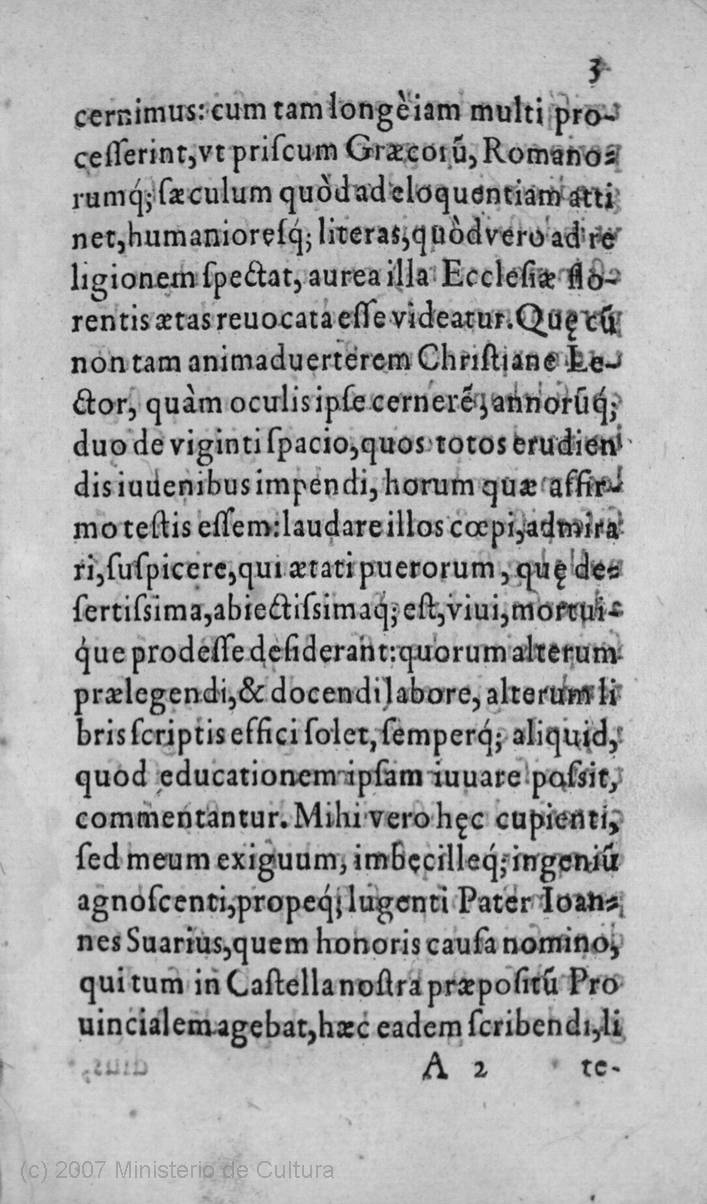 3
cernimus: cum tam longè iam multi pro-
ceſſerint, vt priſcum Græcorũ, Romano-
rumq́; ſæculum quòd ad eloquentiam atti
net, humanioreſq́; literas, quòd vero ad re
ligionem ſpectat, aurea illa Eccleſiæ flo-
rentis ætas reuocata eſſe videatur. Quę cũ
non tam animaduerterem Chriſtiane Le-
ctor, quàm oculis ipſe cernerẽ, annorũq́;
duo de viginti ſpacio, quos totos erudien
dis iuuenibus impendi, horum quæ affir-
mo teſtis eſſem: laudare illos cœpi, admira
ri, ſuſpicere, qui ætati puerorum, quę de-
ſertiſsima, abiectiſsimaq́; eſt, viui, mortui-
q́ue prodeſſe deſiderant: quorum alterum
prælegendi, & docendi labore, alterum li
bris ſcriptis effici ſolet, ſemperq́; aliquid,
quod educationem ipſam iuuare poſsit,
commentantur. Mihi vero hęc cupienti,
ſed meum exiguum, imbęcilleq́; ingeniũ
agnoſcenti, propeq́; lugenti Pater Ioan-
nes Suarius, quem honoris cauſa nomino,
qui tum in Caſtella noſtra præpoſitũ Pro
uincialem agebat, hæc eadem ſcribendi, li
A 2 te-
(c) 2007 Ministerio de Cultura